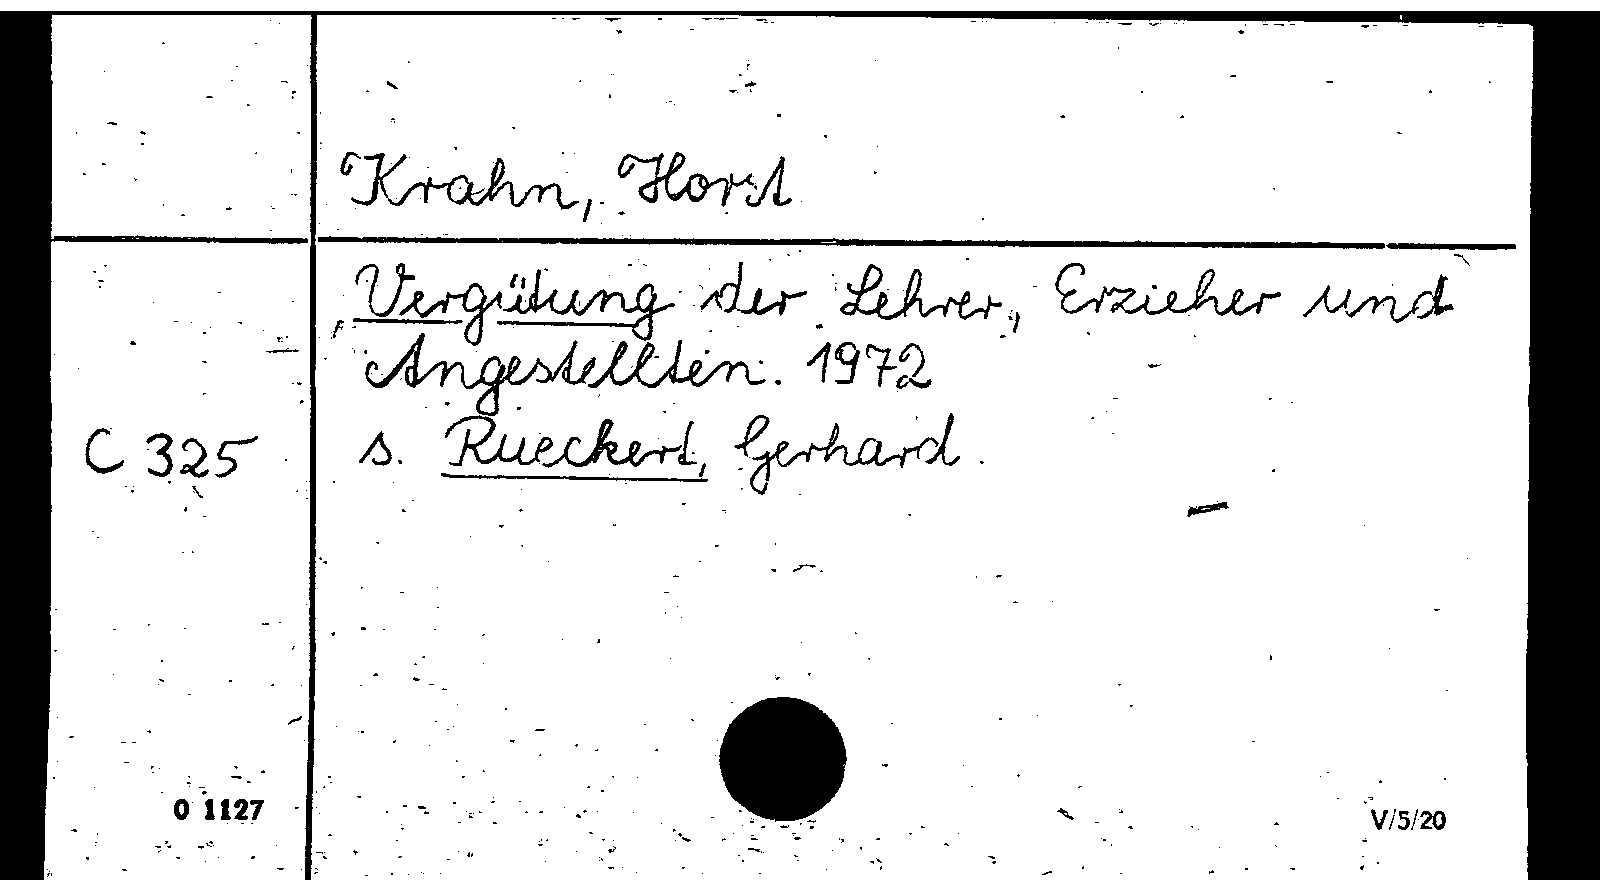 Krahn, Horst
Vergütung der Lehrer, Erzieher und
Angestellten. 1972
C 325 s. Rueckert, Gerhard.
0 1127 V/5/20